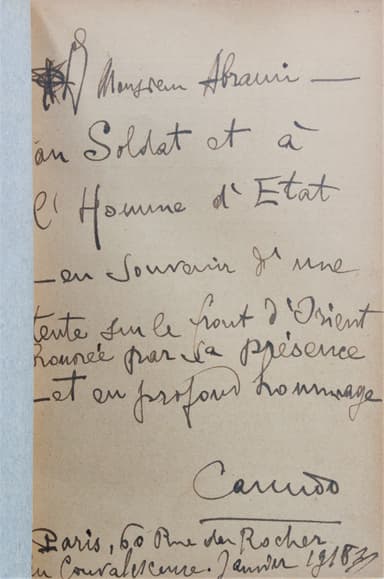 à Monsieur Abrami —
au Soldat et à
l'Homme d'Etat
— en souvenir d'une
tente sur le front d'Orient
honorée par sa présence
— et en profond hommage
Canudo
Paris, 60 Rue du Rocher
en Convalescence. Janvier 1918